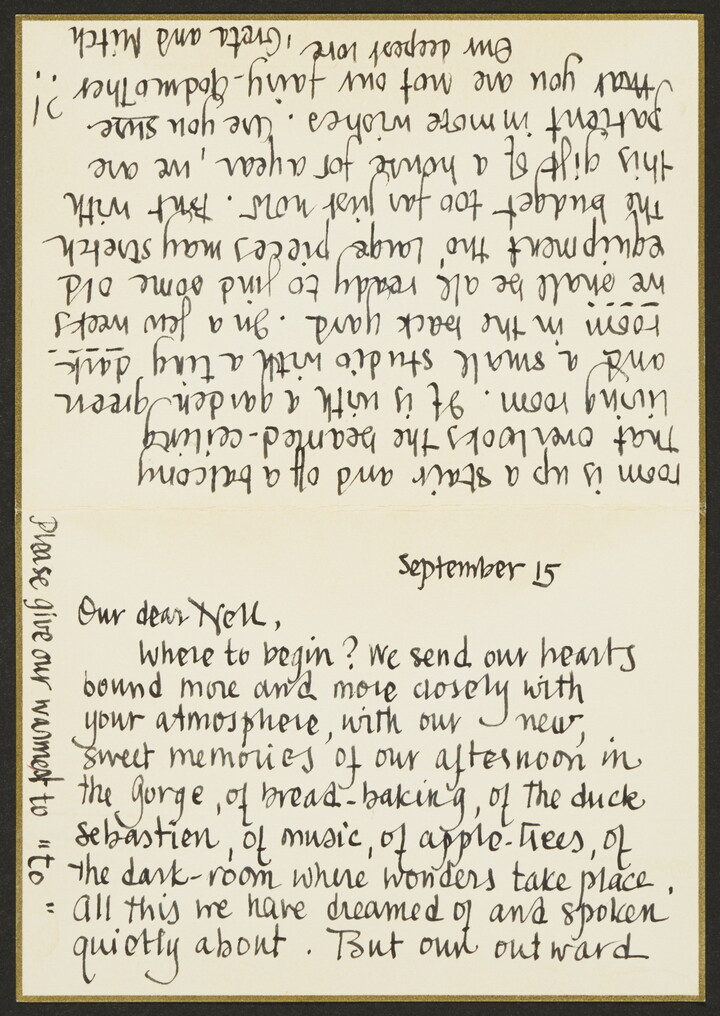 September 15
Our dear Nell,
Where to begin? We send our hearts
bound more and more closely with
your atmosphere, with our new,
sweet memories of our afternoon in
the Gorge, of bread-baking, of the duck
Sebastien, of music, of apple-trees, of
the dark-room where wonders take place.
All this we have dreamed of and spoken
quietly about. But our outward
room is up a stair and off a balcony
that overlooks the beamed-ceiling
living room. It is with a garden green
and a small studio with a tiny dark
room in the back yard. In a few weeks
we shall be all ready to find some old
equipment tho' large pieces may stretch
the budget too far just now. But with
this gift of a house for a year, we are
patient in more wishes. Are you sure
that you are not our fairy-Godmother ?!!
Our deepest love, Greta and Mitch
Please give our warmest to "to"